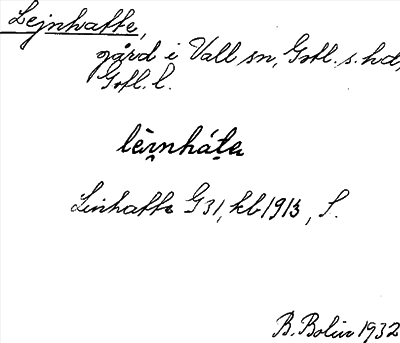 Lejnhatte,
gård i Vall sn, Gotl. s. hd,
Gotl. l.
lēi̯nháta
Linhatte G31, kb 1913, S.
B. Bolin 1932